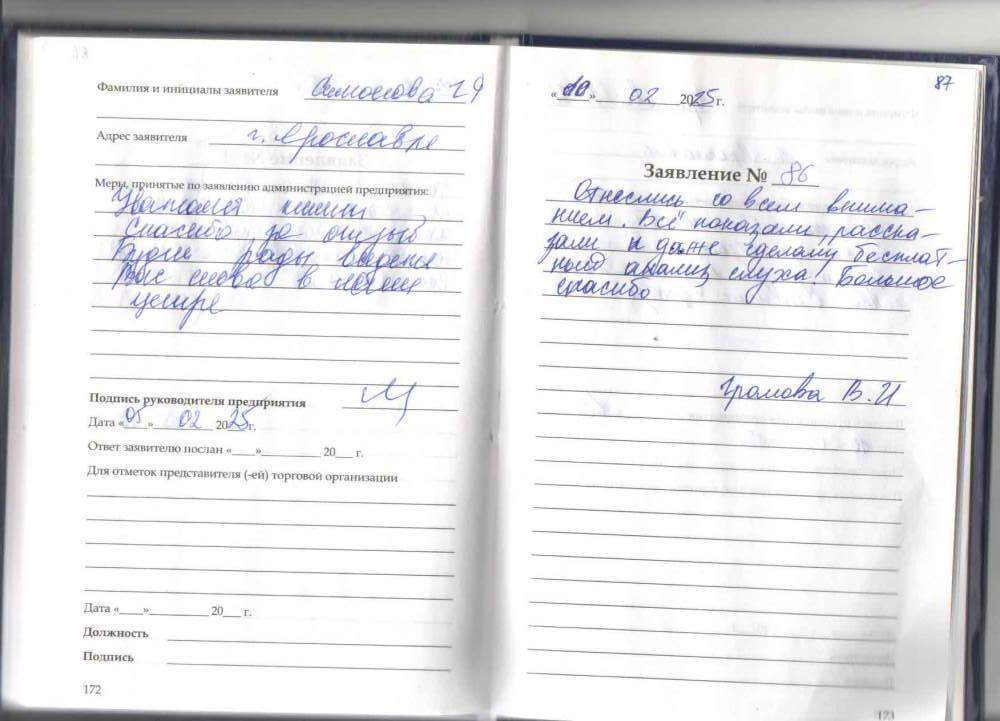 Фамилия и инициалы заявителя
Адрес заявителя г. Ярославле
Меры, принятые по заявлению администрацией предприятия:
Спасибо за отзыв
Будем рады видеть
Вас снова в нашем
центре
Подпись руководителя предприятия
Дата «05» 02 2025г.
Ответ заявителю послан «____»__________ 20___ г.
Для отметок представителя (-ей) торговой организации
Дата «____»__________ 20___ г.
Должность
Подпись
172
87
«10» 02 2025г.
Заявление № 86
Отнеслись со всем внима-
нием. Всё показали, расска-
зали и даже сделали бесплат-
ный анализ слуха. Большое
спасибо
Громова В.И
173